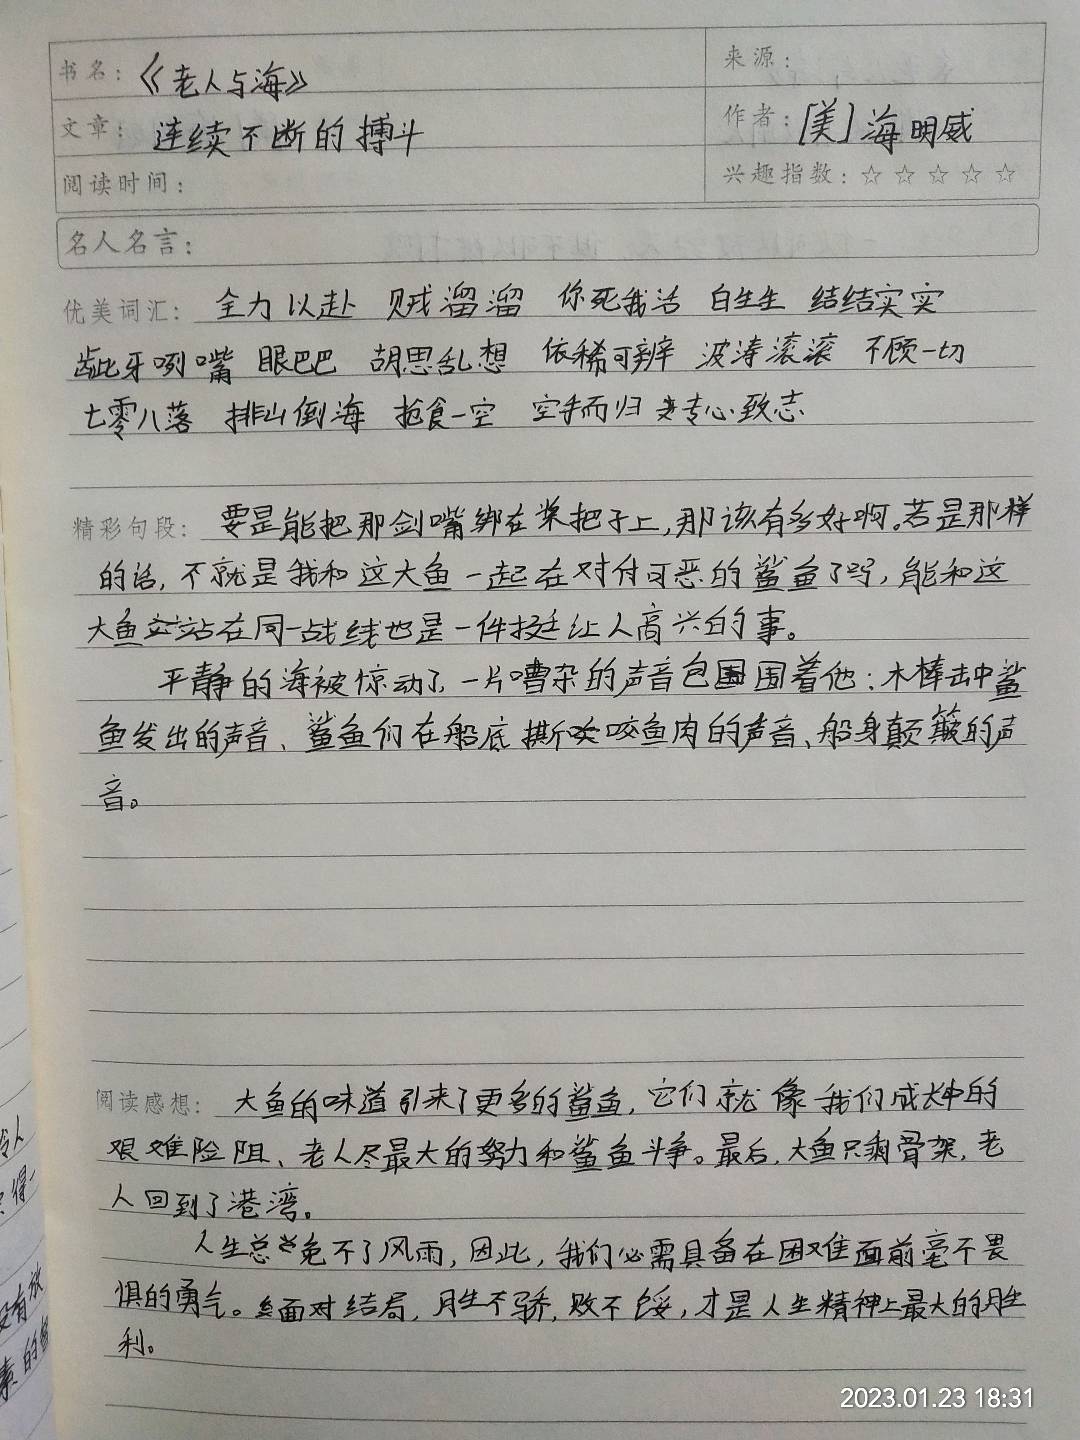 书名：《老人与海》
来源：
文章：连续不断的搏斗
作者：[美]海明威
阅读时间：
兴趣指数：☆☆☆☆☆
名人名言：
优美词汇：全力以赴 贼溜溜 你死我活 白生生 结结实实
龇牙咧嘴 眼巴巴 胡思乱想 依稀可辨 波涛滚滚 不顾一切
七零八落 排山倒海 抢食一空 空手而归 专心致志
精彩句段：要是能把那剑嘴绑在桨把子上,那该有多好啊。若是那样
的话,不就是我和这大鱼一起在对付可恶的鲨鱼了吗,能和这
大鱼站在同一战线也是一件挺让人高兴的事。
平静的海被惊动了,一片嘈杂的声音包围着他:木棒击中鲨
鱼发出的声音、鲨鱼们在船底撕咬鱼肉的声音、船身颠簸的声
音。
阅读感想：大鱼的味道引来了更多的鲨鱼,它们就像我们成长中的
艰难险阻、老人尽最大的努力和鲨鱼斗争。最后,大鱼只剩骨架,老
人回到了港湾。
人生总免不了风雨,因此,我们必需具备在困难面前毫不畏
惧的勇气。面对结局,胜不骄,败不馁,才是人生精神上最大的胜
利。
2023.01.23 18:31